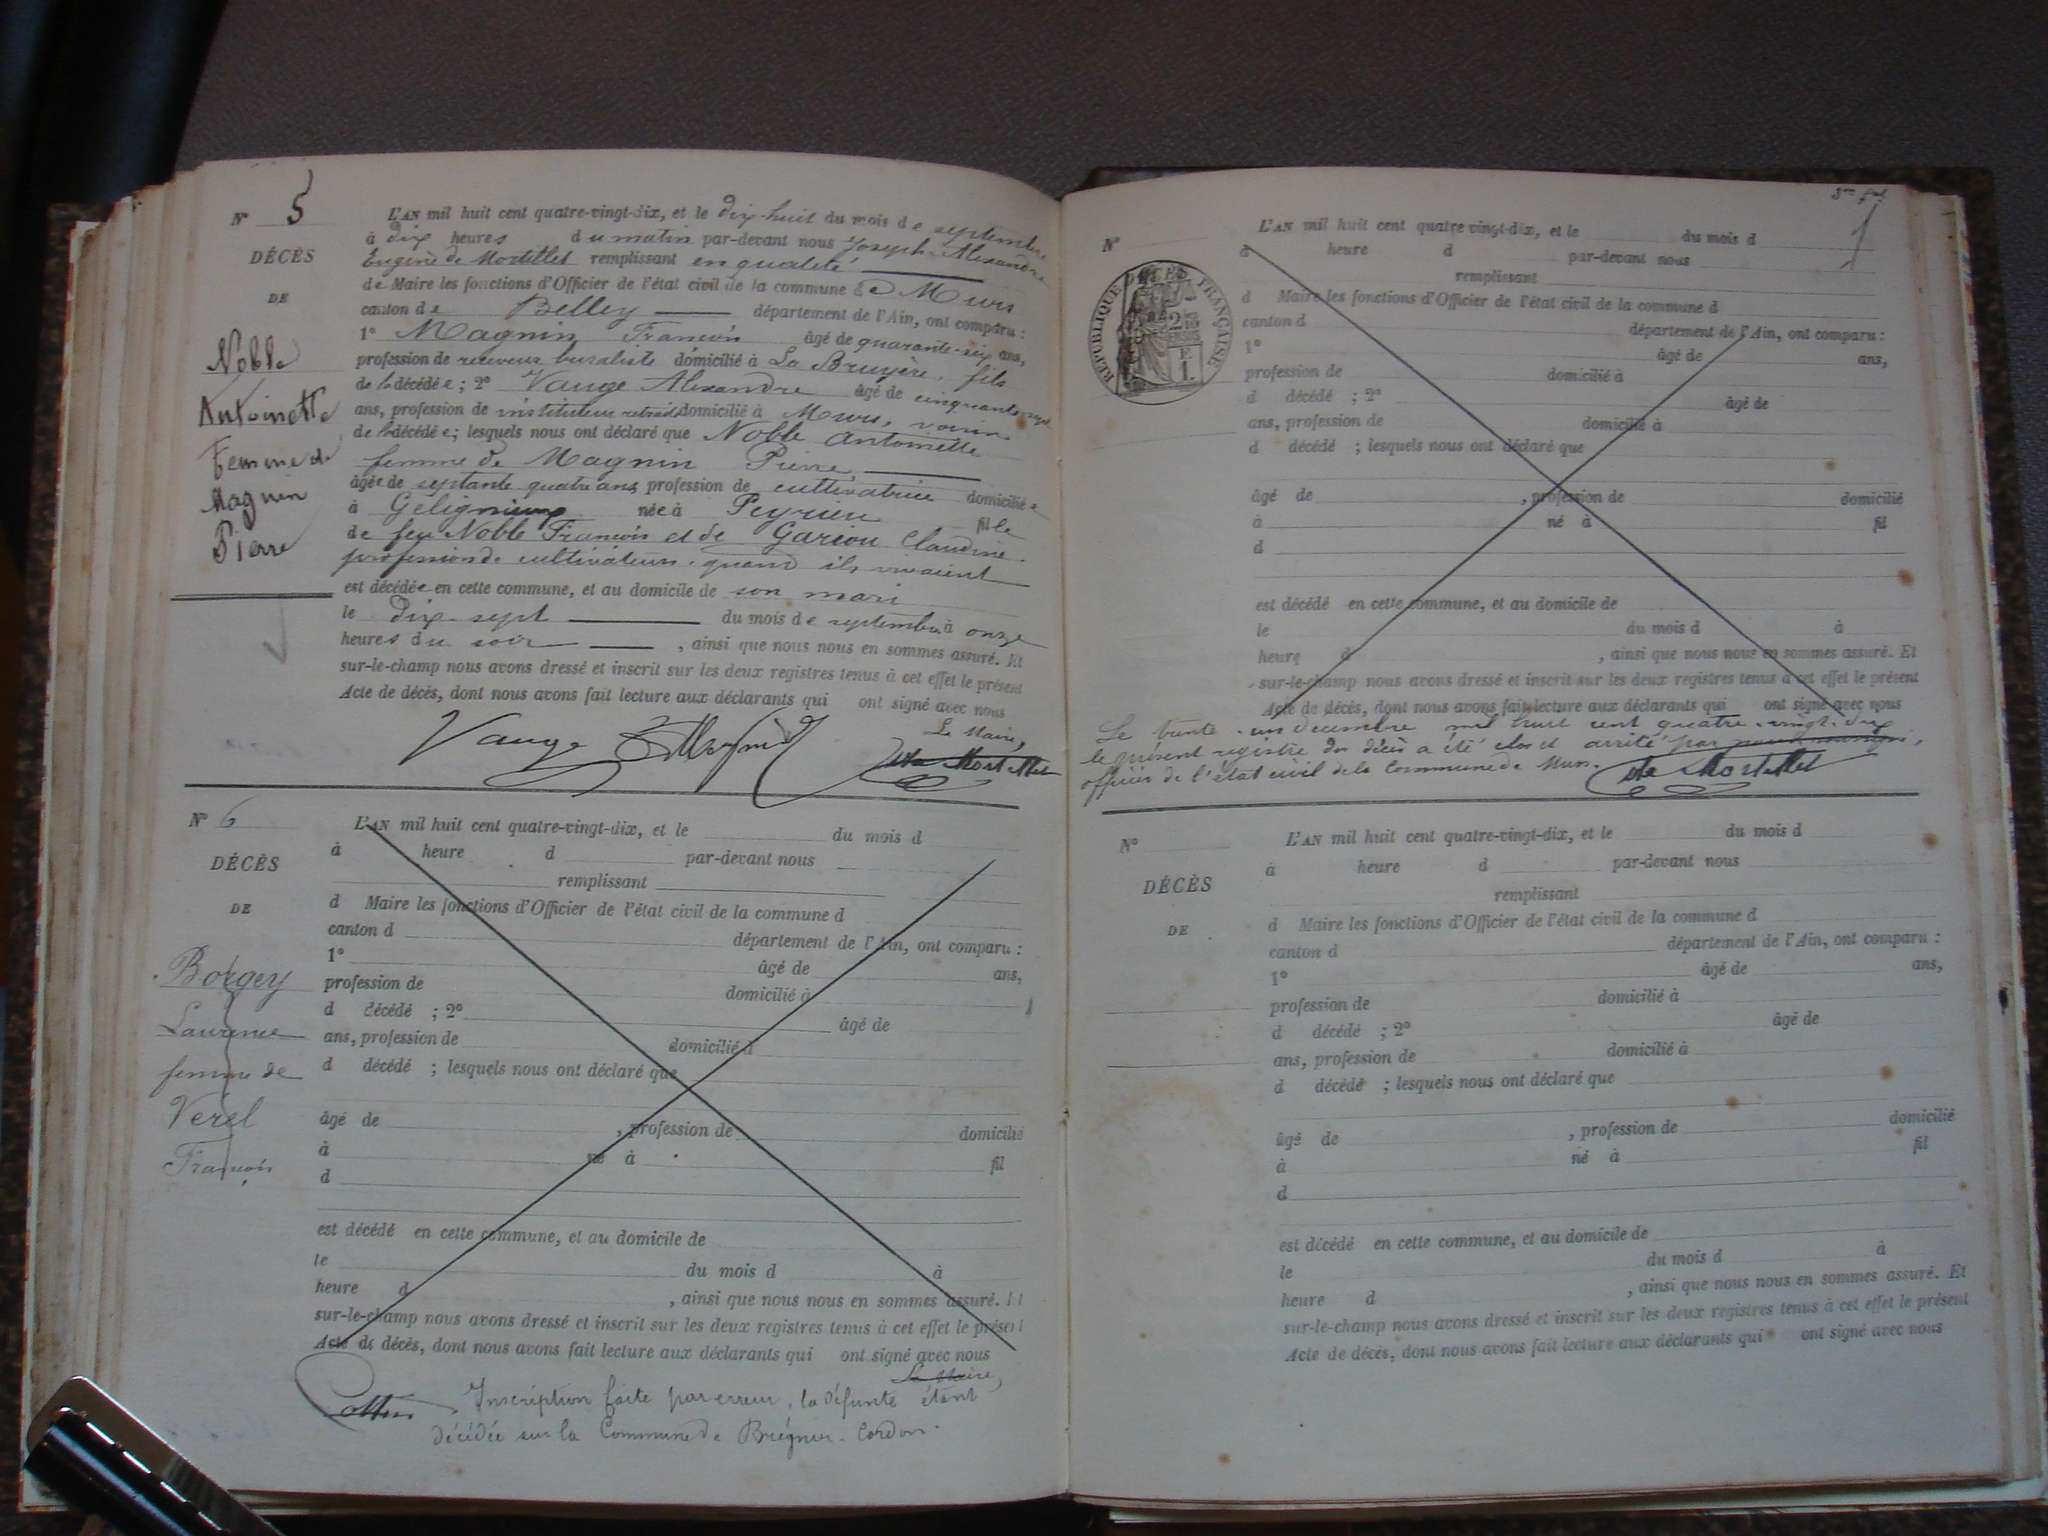 N° 5
DÉCÈS
DE
Noble
Antoinette
Femme de
Magnin
Pierre
L'AN mil huit cent quatre-vingt-dix, et le dix-huit du mois de septembre
à dix heures du matin par-devant nous Joseph-Alexandre
Eugène de Mortillet remplissant en qualité
de Maire les fonctions d'Officier de l'état civil de la commune de Murs
canton de Belley département de l'Ain, ont comparu :
1° Magnin François âgé de quarante-six ans,
profession de receveur buraliste domicilié à La Bruyère, fils
de la décédée ; 2° Vauge Alexandre âgé de cinquante-sept
ans, profession de instituteur retraité domicilié à Murs, voisin
de la décédée ; lesquels nous ont déclaré que Noble Antoinette
femme de Magnin Pierre
âgée de septante quatre ans, profession de cultivatrice domiciliée
à Gélignieux née à Peyrieu fille
de feu Noble François et de Garciou Claudine
profession de cultivateurs quand ils vivaient
est décédée en cette commune, et au domicile de son mari
le dix-sept du mois de septembre à onze
heures du soir , ainsi que nous nous en sommes assuré. Et
sur-le-champ nous avons dressé et inscrit sur les deux registres tenus à cet effet le présent
Acte de décès, dont nous avons fait lecture aux déclarants qui ont signé avec nous
Le Maire,
Vauge Magnin de Mortillet
N° 6
DÉCÈS
DE
Borgey
Laurence
femme de
Verel
François
L'AN mil huit cent quatre-vingt-dix, et le du mois d
à heure d par-devant nous
remplissant
d Maire les fonctions d'Officier de l'état civil de la commune d
canton d département de l'Ain, ont comparu :
1° âgé de ans,
profession de domicilié à
d décédé ; 2° âgé de
ans, profession de domicilié d
d décédé ; lesquels nous ont déclaré que
âgé de , profession de domicilié
à né à fil
d
est décédé en cette commune, et au domicile de
le du mois d à
heure d , ainsi que nous nous en sommes assuré. Et
sur-le-champ nous avons dressé et inscrit sur les deux registres tenus à cet effet le présent
Acte de décès, dont nous avons fait lecture aux déclarants qui ont signé avec nous
Le Maire,
Inscription faite par erreur, la défunte étant
décédée sur la Commune de Brégnier-Cordon.
N°
RÉPUBLIQUE FRANÇAISE
E
1
L'AN mil huit cent quatre-vingt-dix, et le du mois d
à heure d par-devant nous
remplissant
d Maire les fonctions d'Officier de l'état civil de la commune d
canton d département de l'Ain, ont comparu :
1° âgé de ans,
profession de domicilié à
d décédé ; 2° âgé de
ans, profession de domicilié à
d décédé ; lesquels nous ont déclaré que
âgé de , profession de domicilié
à né à fil
d
est décédé en cette commune, et au domicile de
le du mois d à
heure d , ainsi que nous nous en sommes assuré. Et
sur-le-champ nous avons dressé et inscrit sur les deux registres tenus à cet effet le présent
Acte de décès, dont nous avons fait lecture aux déclarants qui ont signé avec nous
Le trente-un décembre mil huit cent quatre-vingt-dix
le présent registre des décès a été clos et arrêté par nous soussigné,
officier de l'état civil de la Commune de Murs. de Mortillet
N°
DÉCÈS
DE
L'AN mil huit cent quatre-vingt-dix, et le du mois d
à heure d par-devant nous
remplissant
d Maire les fonctions d'Officier de l'état civil de la commune d
canton d département de l'Ain, ont comparu :
1° âgé de ans,
profession de domicilié à
d décédé ; 2° âgé de
ans, profession de domicilié à
d décédé ; lesquels nous ont déclaré que
âgé de , profession de domicilié
à né à fil
d
est décédé en cette commune, et au domicile de
le du mois d à
heure d , ainsi que nous nous en sommes assuré. Et
sur-le-champ nous avons dressé et inscrit sur les deux registres tenus à cet effet le présent
Acte de décès, dont nous avons fait lecture aux déclarants qui ont signé avec nous